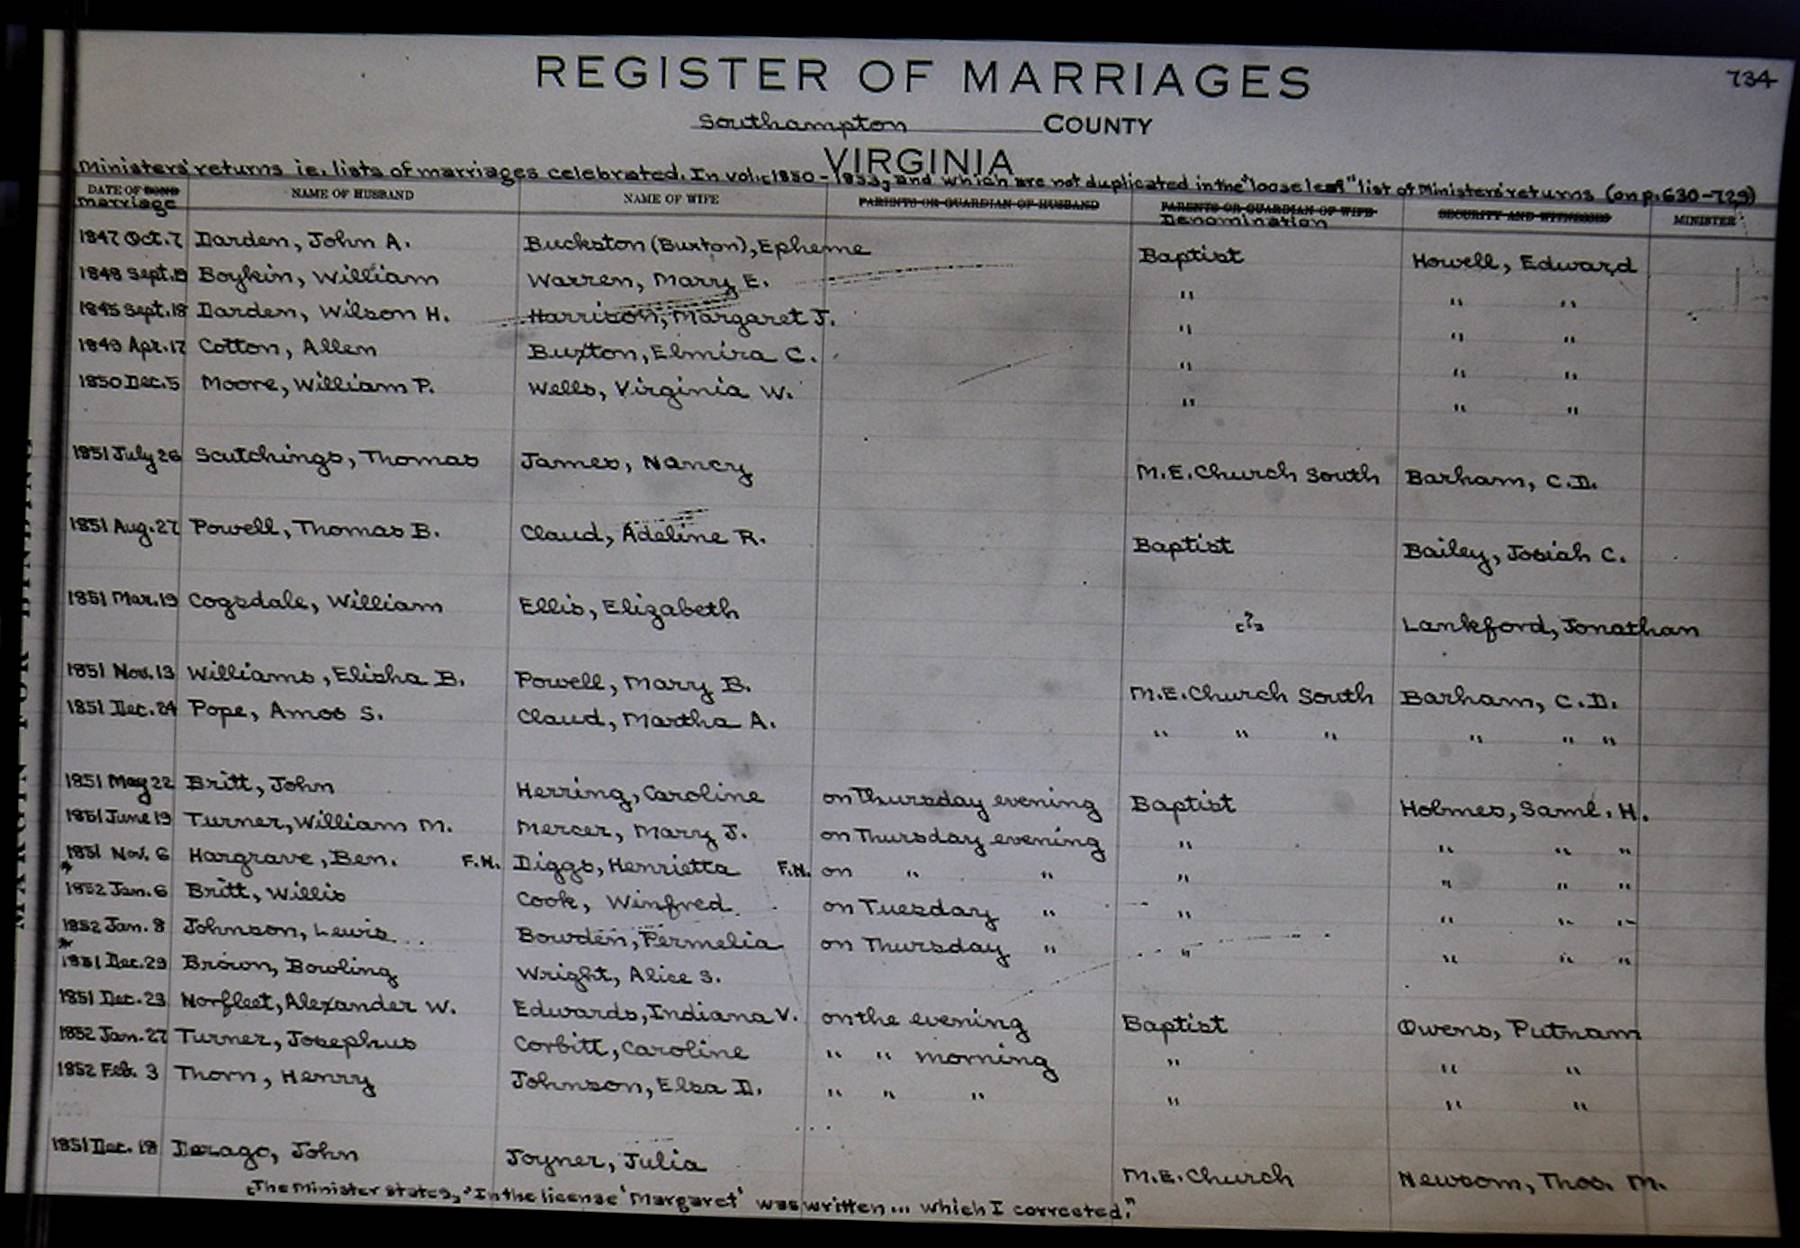 REGISTER OF MARRIAGES 734
Southampton COUNTY
VIRGINIA
Ministers' returns ie. lists of marriages celebrated. In vol. 1850-1853, and which are not duplicated in the "loose leaf" list of Ministers' returns (on p. 630-729)
DATE OF BOND marriage NAME OF HUSBAND NAME OF WIFE PARENTS OR GUARDIAN OF HUSBAND PARENTS OR GUARDIAN OF WIFE Denomination SECURITY AND WITNESSES MINISTER
1847 Oct. 7 Darden, John A. Buckston (Buxton), Epheme Baptist Howell, Edward
1848 Sept. 19 Boykin, William Warren, Mary E. " " "
1845 Sept. 18 Darden, Wilson H. Harrison, Margaret J. " " "
1849 Apr. 17 Cotton, Allen Buxton, Elmira C. " " "
1850 Dec. 5 Moore, William P. Wells, Virginia W. " " "
1851 July 26 Scutchings, Thomas James, Nancy M.E. Church South Barham, C.D.
1851 Aug. 27 Powell, Thomas B. Claud, Adeline R. Baptist Bailey, Josiah C.
1851 Mar. 19 Cogsdale, William Ellis, Elizabeth [?] Lankford, Jonathan
1851 Nov. 13 Williams, Elisha B. Powell, Mary B. M.E. Church South Barham, C.D.
1851 Dec. 24 Pope, Amos S. Claud, Martha A. " " " " " "
1851 May 22 Britt, John Herring, Caroline on Thursday evening Baptist Holmes, Saml. H.
1851 June 19 Turner, William M. Mercer, Mary J. on Thursday evening " " " "
1851 Nov. 6 Hargrave, Ben. F.N. Diggs, Henrietta F.N. on " " " " " "
* 1852 Jan. 6 Britt, Willis Cook, Winfred on Tuesday " " " " "
1852 Jan. 8 Johnson, Lewis Bowden, Permelia on Thursday " " " " "
* 1851 Dec. 29 Brown, Bowling Wright, Alice S.
1851 Dec. 23 Norfleet, Alexander W. Edwards, Indiana V. on the evening Baptist Owens, Putnam
1852 Jan. 27 Turner, Josephus Corbitt, Caroline " " morning " " "
1852 Feb. 3 Thorn, Henry Johnson, Elsa D. " " " " " "
1851 Dec. 18 Derago, John Joyner, Julia M.E. Church Newsom, Thos. M.
[The Minister states, "In the license 'Margaret' was written ... which I corrected."